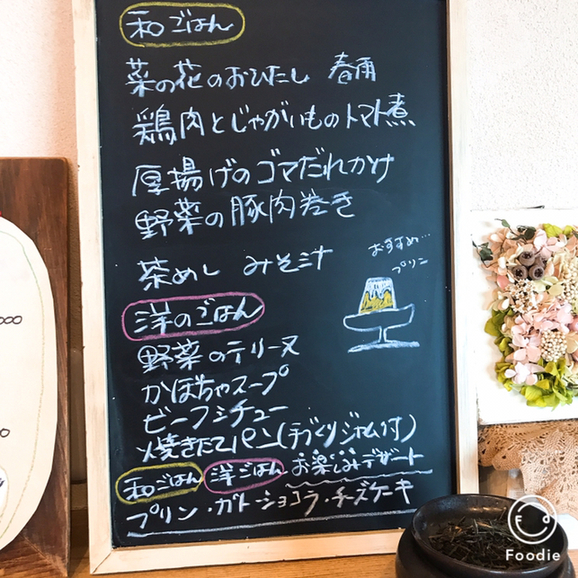 和ごはん
菜の花のおひたし 春雨
鶏肉とじゃがいものトマト煮
厚揚げのゴマだれかけ
野菜の豚肉巻き
茶めし みそ汁
おすすめ…
プリン
洋のごはん
野菜のテリーヌ
かぼちゃスープ
ビーフシチュー
焼きたてパン(手づくりジャム付)
和ごはん 洋ごはん お楽しみデザート
プリン・ガトーショコラ・チーズケーキ
Foodie